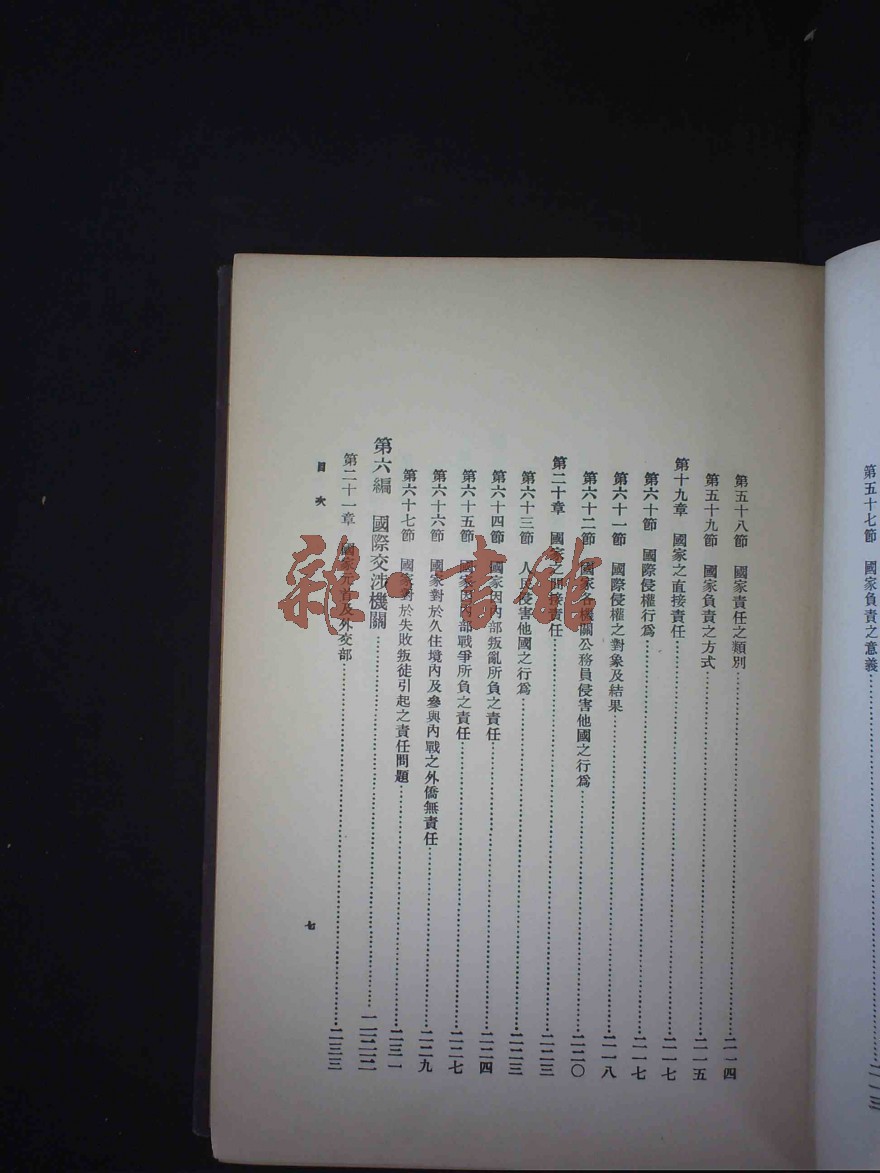 第五十七節　國家負責之意義……二一三
第五十八節　國家責任之類別……二一四
第五十九節　國家負責之方式……二一五
第十九章　國家之直接責任……二一七
第六十節　國際侵權行爲……二一七
第六十一節　國際侵權之對象及結果……二一八
第六十二節　國家各機關公務員侵害他國之行爲……二二〇
第二十章　國家之間接責任……二二三
第六十三節　人民侵害他國之行爲……二二三
第六十四節　國家因內部叛亂所負之責任……二二四
第六十五節　國家因內部戰爭所負之責任……二二七
第六十六節　國家對於久住境內及參與內戰之外僑無責任……二二九
第六十七節　國家對於失敗叛徒引起之責任問題……二三一
第六編　國際交涉機關
第二十一章　國家元首及外交部……二三三
目次
七
雜·書館